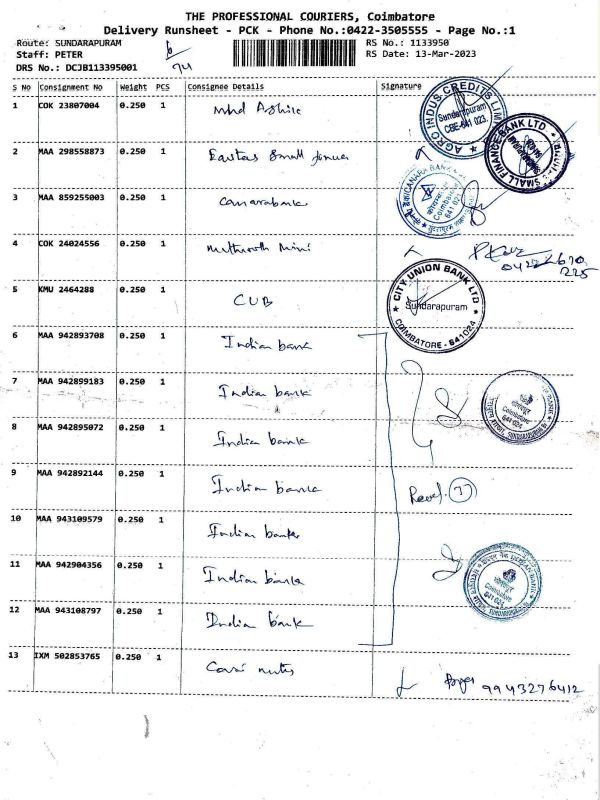 THE PROFESSIONAL COURIERS, Coimbatore
Delivery Runsheet - PCK - Phone No.:0422-3505555 - Page No.:1
Route: SUNDARAPURAM
RS No.: 1133950
Staff: PETER
RS Date: 13-Mar-2023
DRS No.: DCJB113395001
S No Consignment No Weight PCS Consignee Details Signature
1 COK 23807004 0.250 1
AGRO INDUS CREDITS LIM
Sundarapuram
CBE-641 023.
2 MAA 298558873 0.250 1
SMALL FINANCE BANK LTD
3 MAA 859255003 0.250 1 Canarabank
CANARA BANK
Coimbatore
641 024
4 COK 24024556 0.250 1
5 KMU 2464288 0.250 1 CUB
CITY UNION BANK LTD
Sundarapuram
COIMBATORE - 641024
6 MAA 942893708 0.250 1 Indian bank
7 MAA 942899183 0.250 1 Indian bank
Coimbatore
641 024
8 MAA 942895072 0.250 1 Indian bank
9 MAA 942892144 0.250 1 Indian bank
10 MAA 943109579 0.250 1 Indian bank
11 MAA 942904356 0.250 1 Indian bank
INDIAN BANK
Coimbatore
641 024
12 MAA 943108797 0.250 1 Indian bank
13 IXM 502853765 0.250 1
9943276412